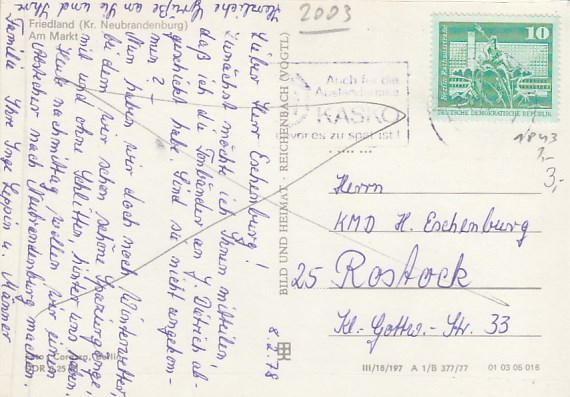 Friedland (Kr. Neubrandenburg)
Am Markt
2003
8.2.78
Lieber Herr Eschenburg!
Zunächst möchte ich Ihnen mitteilen,
daß ich die an G. Dietrich ab-
geschickt habe. Sind sie nicht angekom-
men?
Nun haben wir doch noch Winterwetter,
bei dem wir schon schöne Spaziergänge,
mit und ohne Schlitten, hinter uns haben.
Heute nachmittag wollen wir einen
Abstecher nach Neubrandenburg machen.
Herzliche
Grüße an Sie und Ihre
Familie Ihre Inge Leppin u. Männer
BILD UND HEIMAT · REICHENBACH (VOGTL)
Auch für die
KASKO
bevor es zu spät ist!
10
Berlin, Rathausstraße
DEUTSCHE DEMOKRATISCHE REPUBLIK
3,-
Herrn
KMD H. Eschenburg
25 Rostock
Kl.-Gottw.-Str. 33
III/18/197 A 1/B 377/77 01 03 05 016